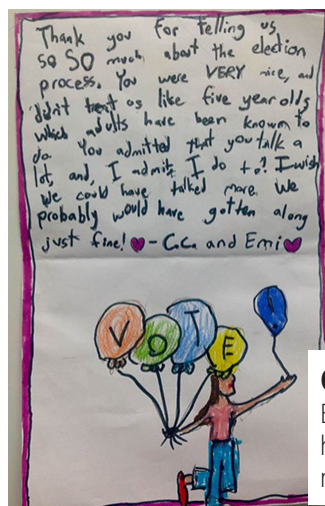 Thank you for telling us
so SO much about the election
process. You were VERY nice, and
didn't treat us like five year olds
which adults have been known to
do. You admitted that you talk a
lot, and, I admit, I do to! I wish
we could have talked more. We
probably would have gotten along
just fine! - CeCe and Emi
V O T E !